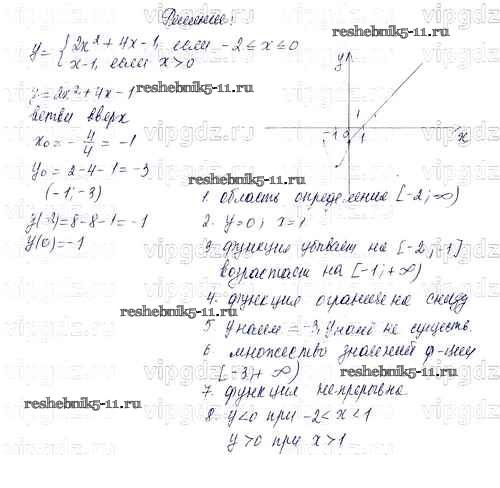 Решение:
y = { 2x² + 4x - 1, если -2 ≤ x ≤ 0
x - 1, если x > 0
y = 2x² + 4x - 1
ветви вверх
x₀ = - 4/4 = -1
y₀ = 2 - 4 - 1 = -3
(-1; -3)
y(-2) = 8 - 8 - 1 = -1
y(0) = -1
y
1
-1 0 1 x
1. область определения [-2; ∞)
2. y = 0; x = 1
3. функция убывает на [-2; -1]
возрастает на [-1; +∞)
4. функция ограничена снизу
5. y наим = -3, y наиб не существ.
6. множество значений ф-ции
[-3; +∞)
7. функция непрерывна
8. y < 0 при -2 < x < 1
y > 0 при x > 1
reshebnik5-11.ru
reshebnik5-11.ru
reshebnik5-11.ru
reshebnik5-11.ru
reshebnik5-11.ru
vipgdz.ru